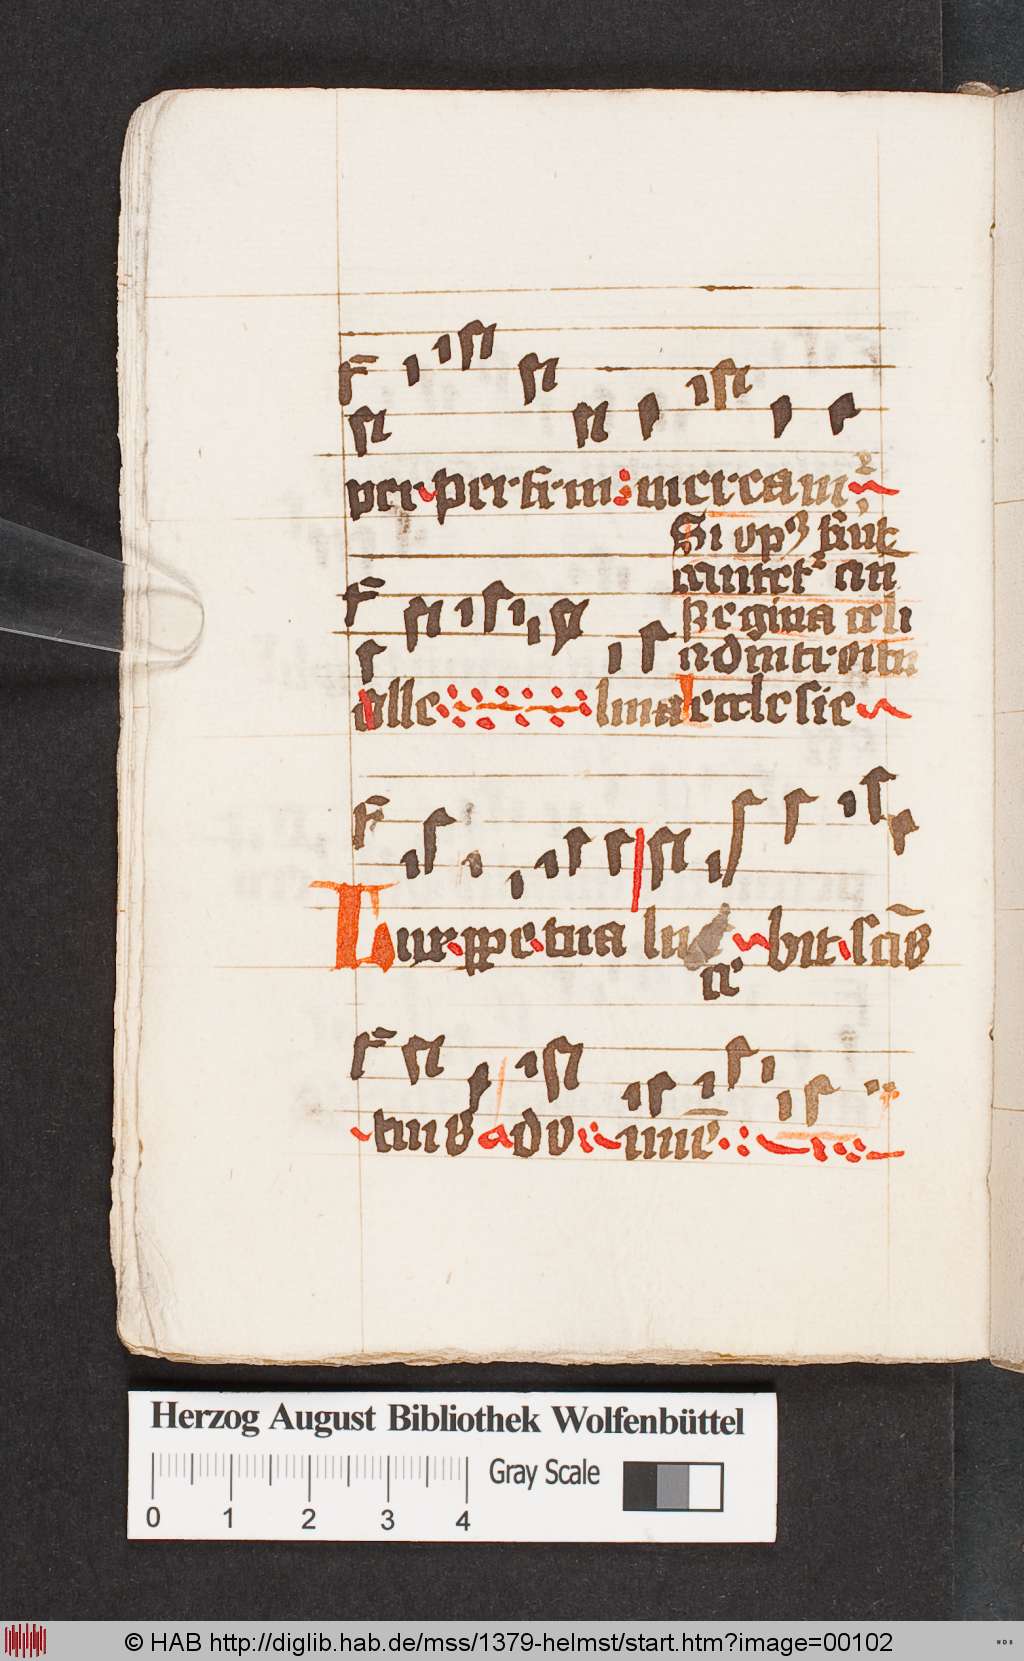 per perfrui mereamr
Si opꝰ fuīt
cantetr añ
Regina celi
ad introitu
alle luia ecclesie
Lux ꝑpetua lu ce bit scīs
tuis dn̄e
Herzog August Bibliothek Wolfenbüttel
Gray Scale
0 1 2 3 4
© HAB http://diglib.hab.de/mss/1379-helmst/start.htm?image=00102